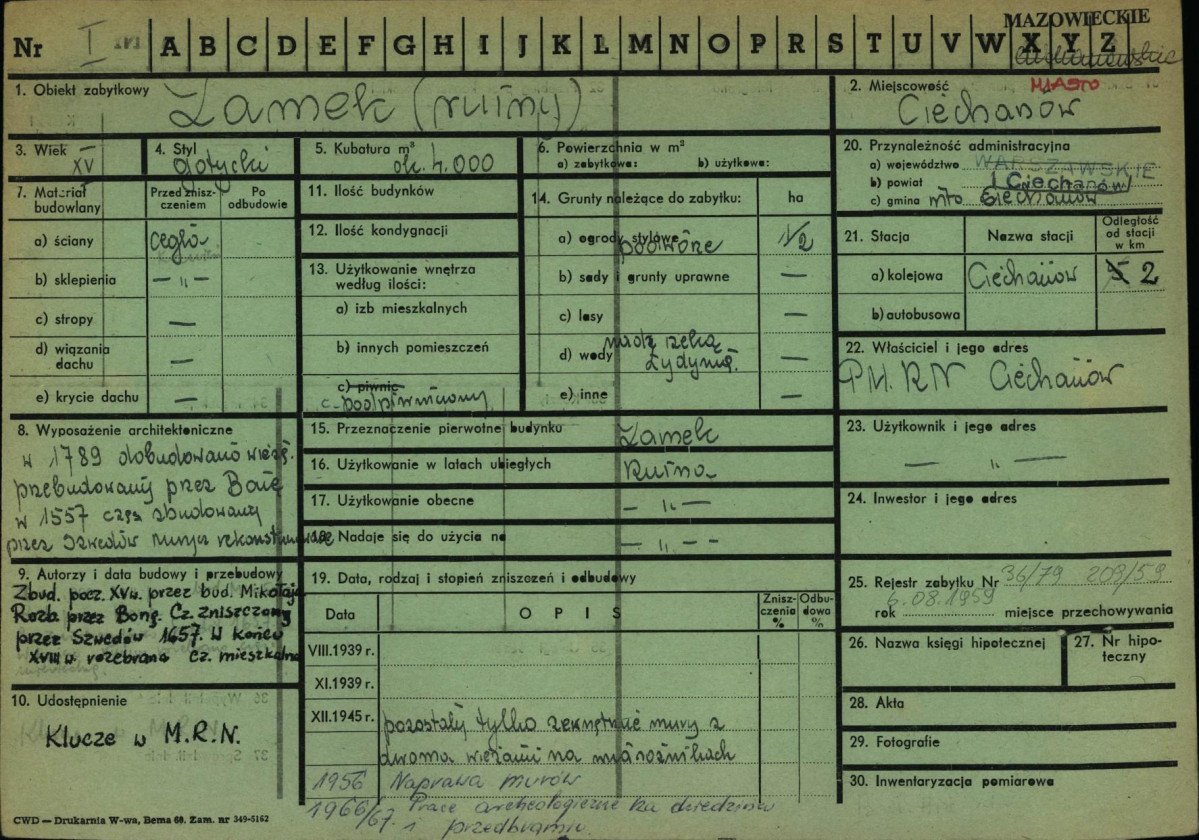 MAZOWIECKIE
Nr I A B C D E F G H I J K L M N O P R S T U V W X Y Z
1. Obiekt zabytkowy
Zamek (ruiny)
2. Miejscowość MIASTO
Ciechanów
3. Wiek
XV
4. Styl
gotycki
5. Kubatura m³
ok. 4.000
6. Powierzchnia w m²
a) zabytkowa: b) użytkowa:
20. Przynależność administracyjna
a) województwo WARSZAWSKIE
b) powiat Ciechanów
c) gmina m-to Ciechanów
7. Materiał budowlany
Przed znisz-
czeniem
Po
odbudowie
a) ściany cegła
b) sklepienia — " —
c) stropy —
d) wiązania
dachu —
e) krycie dachu —
11. Ilość budynków
12. Ilość kondygnacji
13. Użytkowanie wnętrza
według ilości:
a) izb mieszkalnych
b) innych pomieszczeń
c) piwnic
c - podpiwniczony
14. Grunty należące do zabytku: ha
a) ogrody stylowe 1/2
podwórze
b) sady i grunty uprawne —
c) lasy —
nad rzeką
d) wody Łydynią. —
e) inne —
21. Stacja Nazwa stacji
Odległość
od stacji
w km
a) kolejowa Ciechanów 5 2
b) autobusowa
22. Właściciel i jego adres
PM. RN Ciechanów
8. Wyposażenie architektoniczne
w 1789 dobudowano wieżę.
przebudowany przez Bonę
w 1557 częś zbudowany
przez Szwedów
15. Przeznaczenie pierwotne budynku Zamek
16. Użytkowanie w latach ubiegłych Ruina
17. Użytkowanie obecne — " —
18. Nadaje się do użycia na — " — -
23. Użytkownik i jego adres
— " —
24. Inwestor i jego adres
9. Autorzy i data budowy i przebudowy
Zbud. pocz. XV w. przez bud. Mikołaja
Rozb. przez Bonę. Cz. zniszczony
przez Szwedów 1657. W końcu
XVIII w. rozebrana cz. mieszkalna
10. Udostępnienie
Klucze w M.R.N.
19. Data, rodzaj i stopień zniszczeń i odbudowy
Data OPIS
Znisz-
czenia
%
Odbu-
dowa
%
VIII.1939 r.
XI.1939 r.
XII.1945 r. pozostały tylko zewnętrzne mury z
dwoma wieżami na narożnikach
1956 Naprawa murów
1966/67. Prace archeologiczne na dziedzińcu
i przedbramiu.
25. Rejestr zabytku Nr 36/79 208/59
rok 6.08.1959 miejsce przechowywania
26. Nazwa księgi hipotecznej
27. Nr hipo-
teczny
28. Akta
29. Fotografie
30. Inwentaryzacja pomiarowa
CWD — Drukarnia W-wa, Bema 68. Zam. nr 349-5162